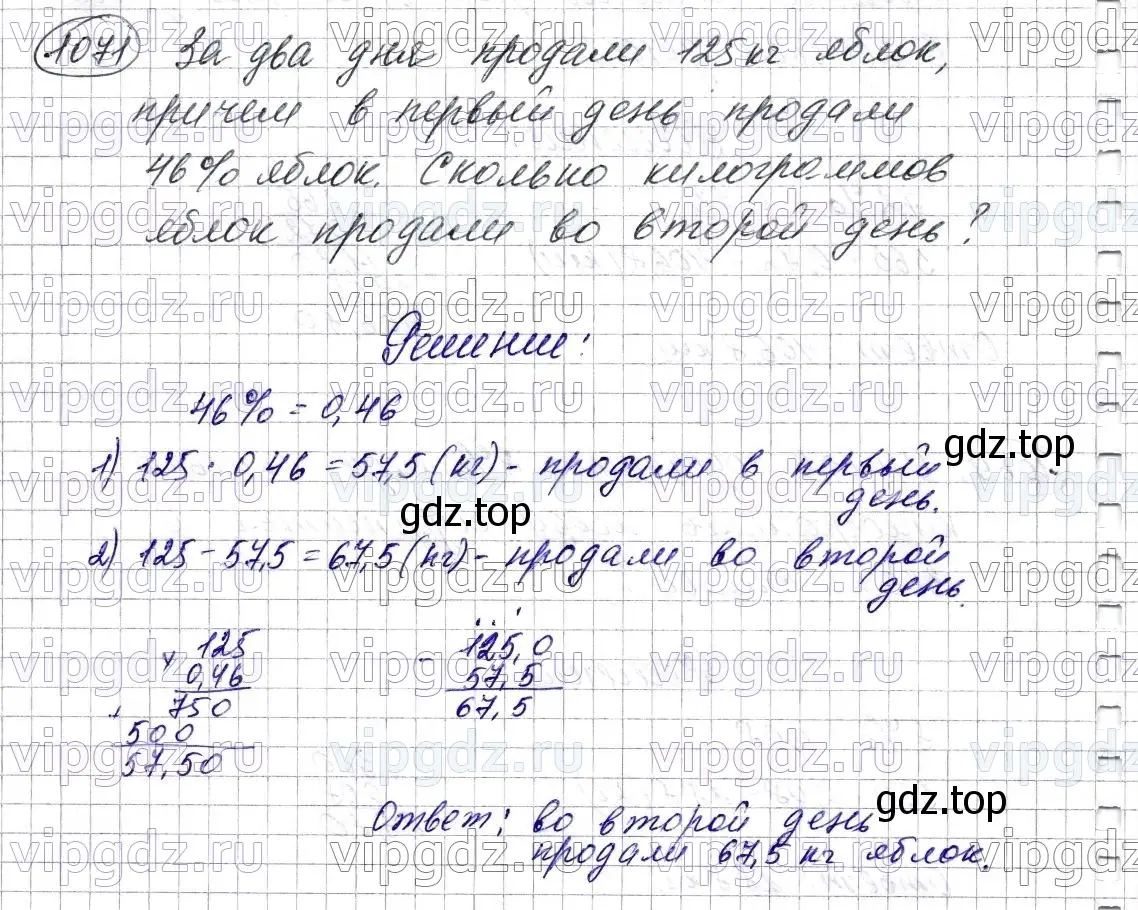 1071 За два дня продали 125 кг яблок,
причем в первый день продали
46% яблок. Сколько килограммов
яблок продали во второй день?
Решение:
46% = 0,46
1) 125 · 0,46 = 57,5 (кг) - продали в первый
день.
2) 125 - 57,5 = 67,5 (кг) - продали во второй
день.
× 125
0,46
+ 750
500
57,50
- 125,0
57,5
67,5
Ответ: во второй день
продали 67,5 кг яблок.
gdz.top
gdz.top
gdz.top
vipgdz.ru